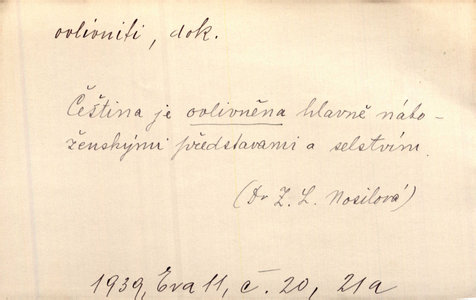 ovlivniti, dok.
Čeština je ovlivněna hlavně nábo-
ženskými představami a selstvím.
(Dr Z. L. Nosilová)
1939, Eva 11, č. 20, 21a